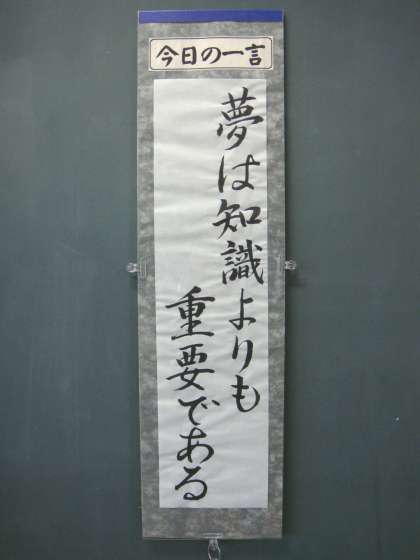 今日の一言
夢は知識よりも
重要である